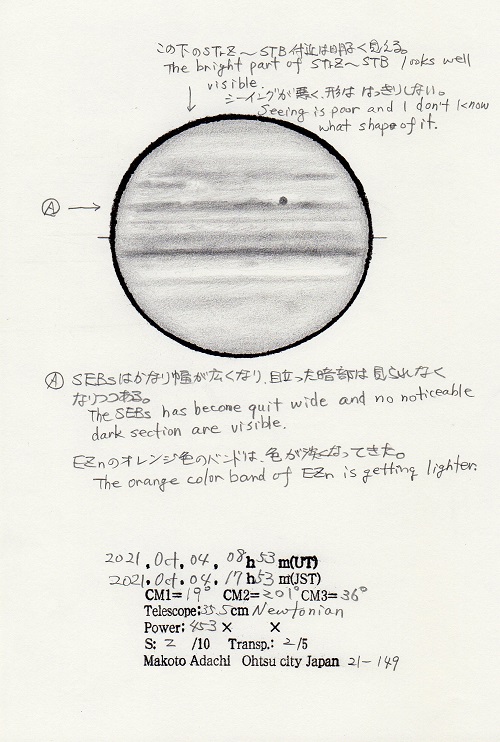 この下のSTrZ〜STB付近は明るく見える。
The bright part of STrZ〜STB looks well
visible.
シーイングが悪く、形は はっきりしない。
Seeing is poor and I don't know
what shape of it.
Ⓐ
Ⓐ SEBsはかなり幅が広くなり、目立った暗部は見られなく
なりつつある。
The SEBs has become quit wide and no noticeable
dark section are visible.
EZnのオレンジ色のバンドは、色が淡くなってきた。
The orange color band of EZn is getting lighter.
2021.Oct.04.08h53m(UT)
2021.Oct.04.17h53m(JST)
CM1=19° CM2=201° CM3=36°
Telescope:35.5cm Newtonian
Power:453× ×
S: 2 /10 Transp.: 2/5
Makoto Adachi Ohtsu city Japan 21-149